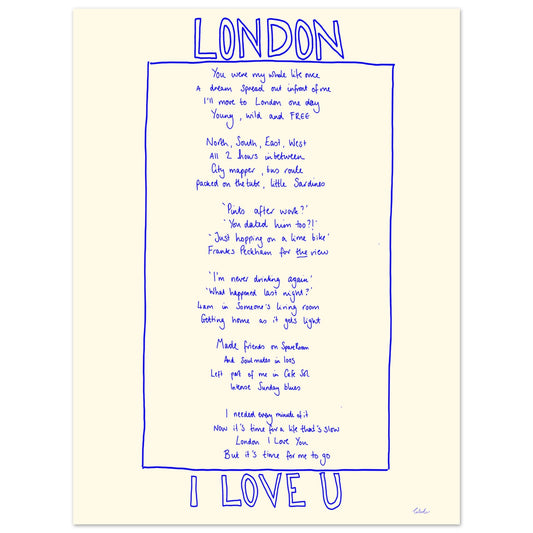 LONDON
You were my whole life once
A dream spread out infront of me
I'll move to London one day
Young, wild and FREE
North, South, East, West
All 2 hours inbetween
City mapper, bus route
packed on the tube, little Sardines
'Pints after work?'
'You dated him too?!'
'Just hopping on a lime bike'
Franks Peckham for the view
'I'm never drinking again'
'What happened last night?'
4am in Someone's living room
Getting home as it gets light
Made friends on Spareroom
And Soulmates in loos
Left part of me in Cafe Sol
Intense Sunday blues
I needed every minute of it
Now it's time for a life that's slow
London I Love You
But it's time for me to go
I LOVE U